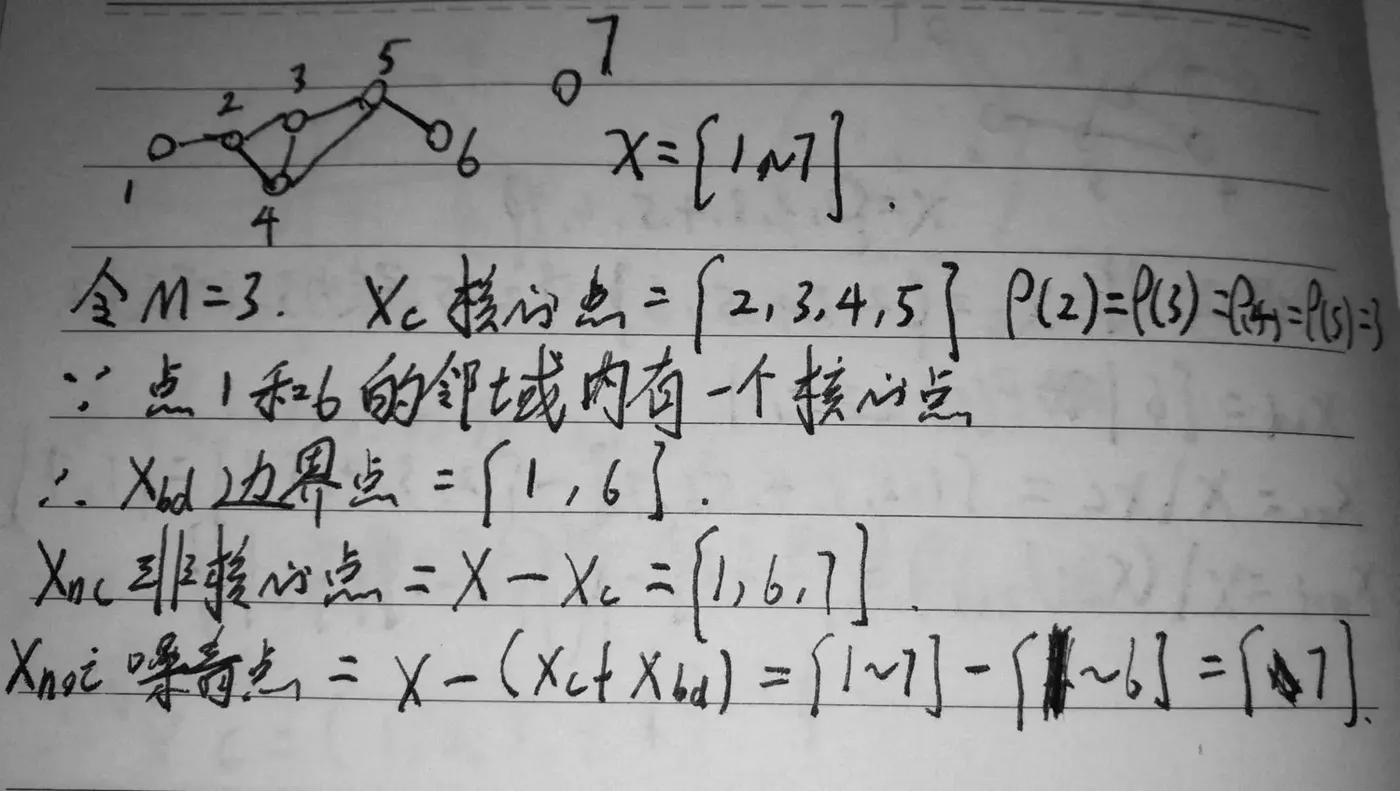 5 7
3
2
6
1
4
X={1~7}.
令M=3. Xc核心点={2,3,4,5} ρ(2)=ρ(3)=ρ(4)=ρ(5)=3
∵点1和6的邻域内有一个核心点
∴Xbd边界点={1,6}.
Xnc非核心点=X-Xc={1,6,7}.
Xnoi噪音点=X-(Xc+Xbd)={1~7}-{1~6}={7}.